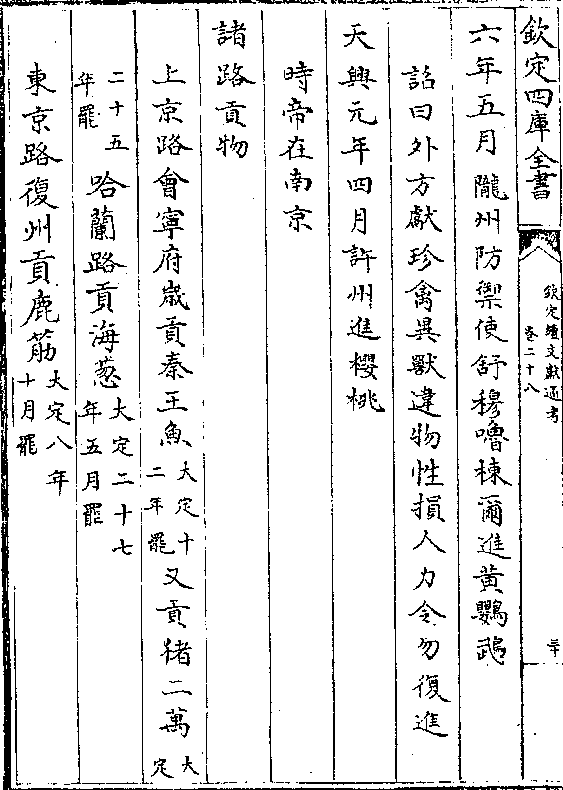 欽定四庫全書
欽定續文獻通考
卷二十八
三十
六年五月隴州防禦使舒穆嚕棟爾進黃鸚鵡
詔曰外方獻珍禽異獸違物性損人力令勿復進
天興元年四月許州進櫻桃
時帝在南京
諸路貢物
上京路會寧府歲貢秦王魚大定十二年罷又貢猪二萬大定
二十五年罷哈蘭路貢海葱大定二十七年五月罷
東京路復州貢鹿筋大定八年十月罷